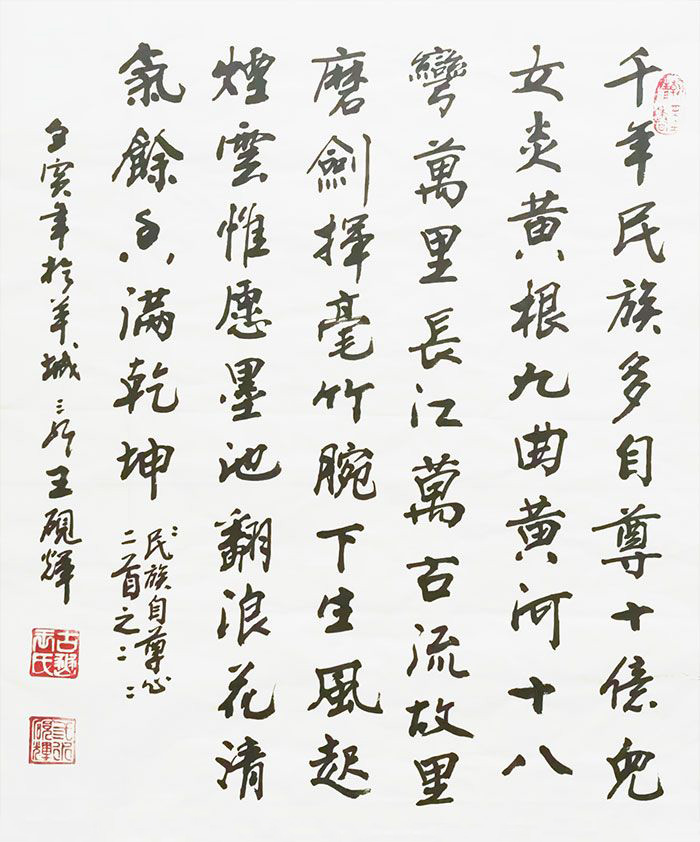 千年民族多自尊十億兒
女炎黄根九曲黄河十八
彎萬里長江萬古流故里
磨劍揮毫竹腕下生風起
煙雲惟愿墨池翻浪花清
氣餘香滿乾坤
民族自尊心
二首之二
壬寅年於羊城王硯輝